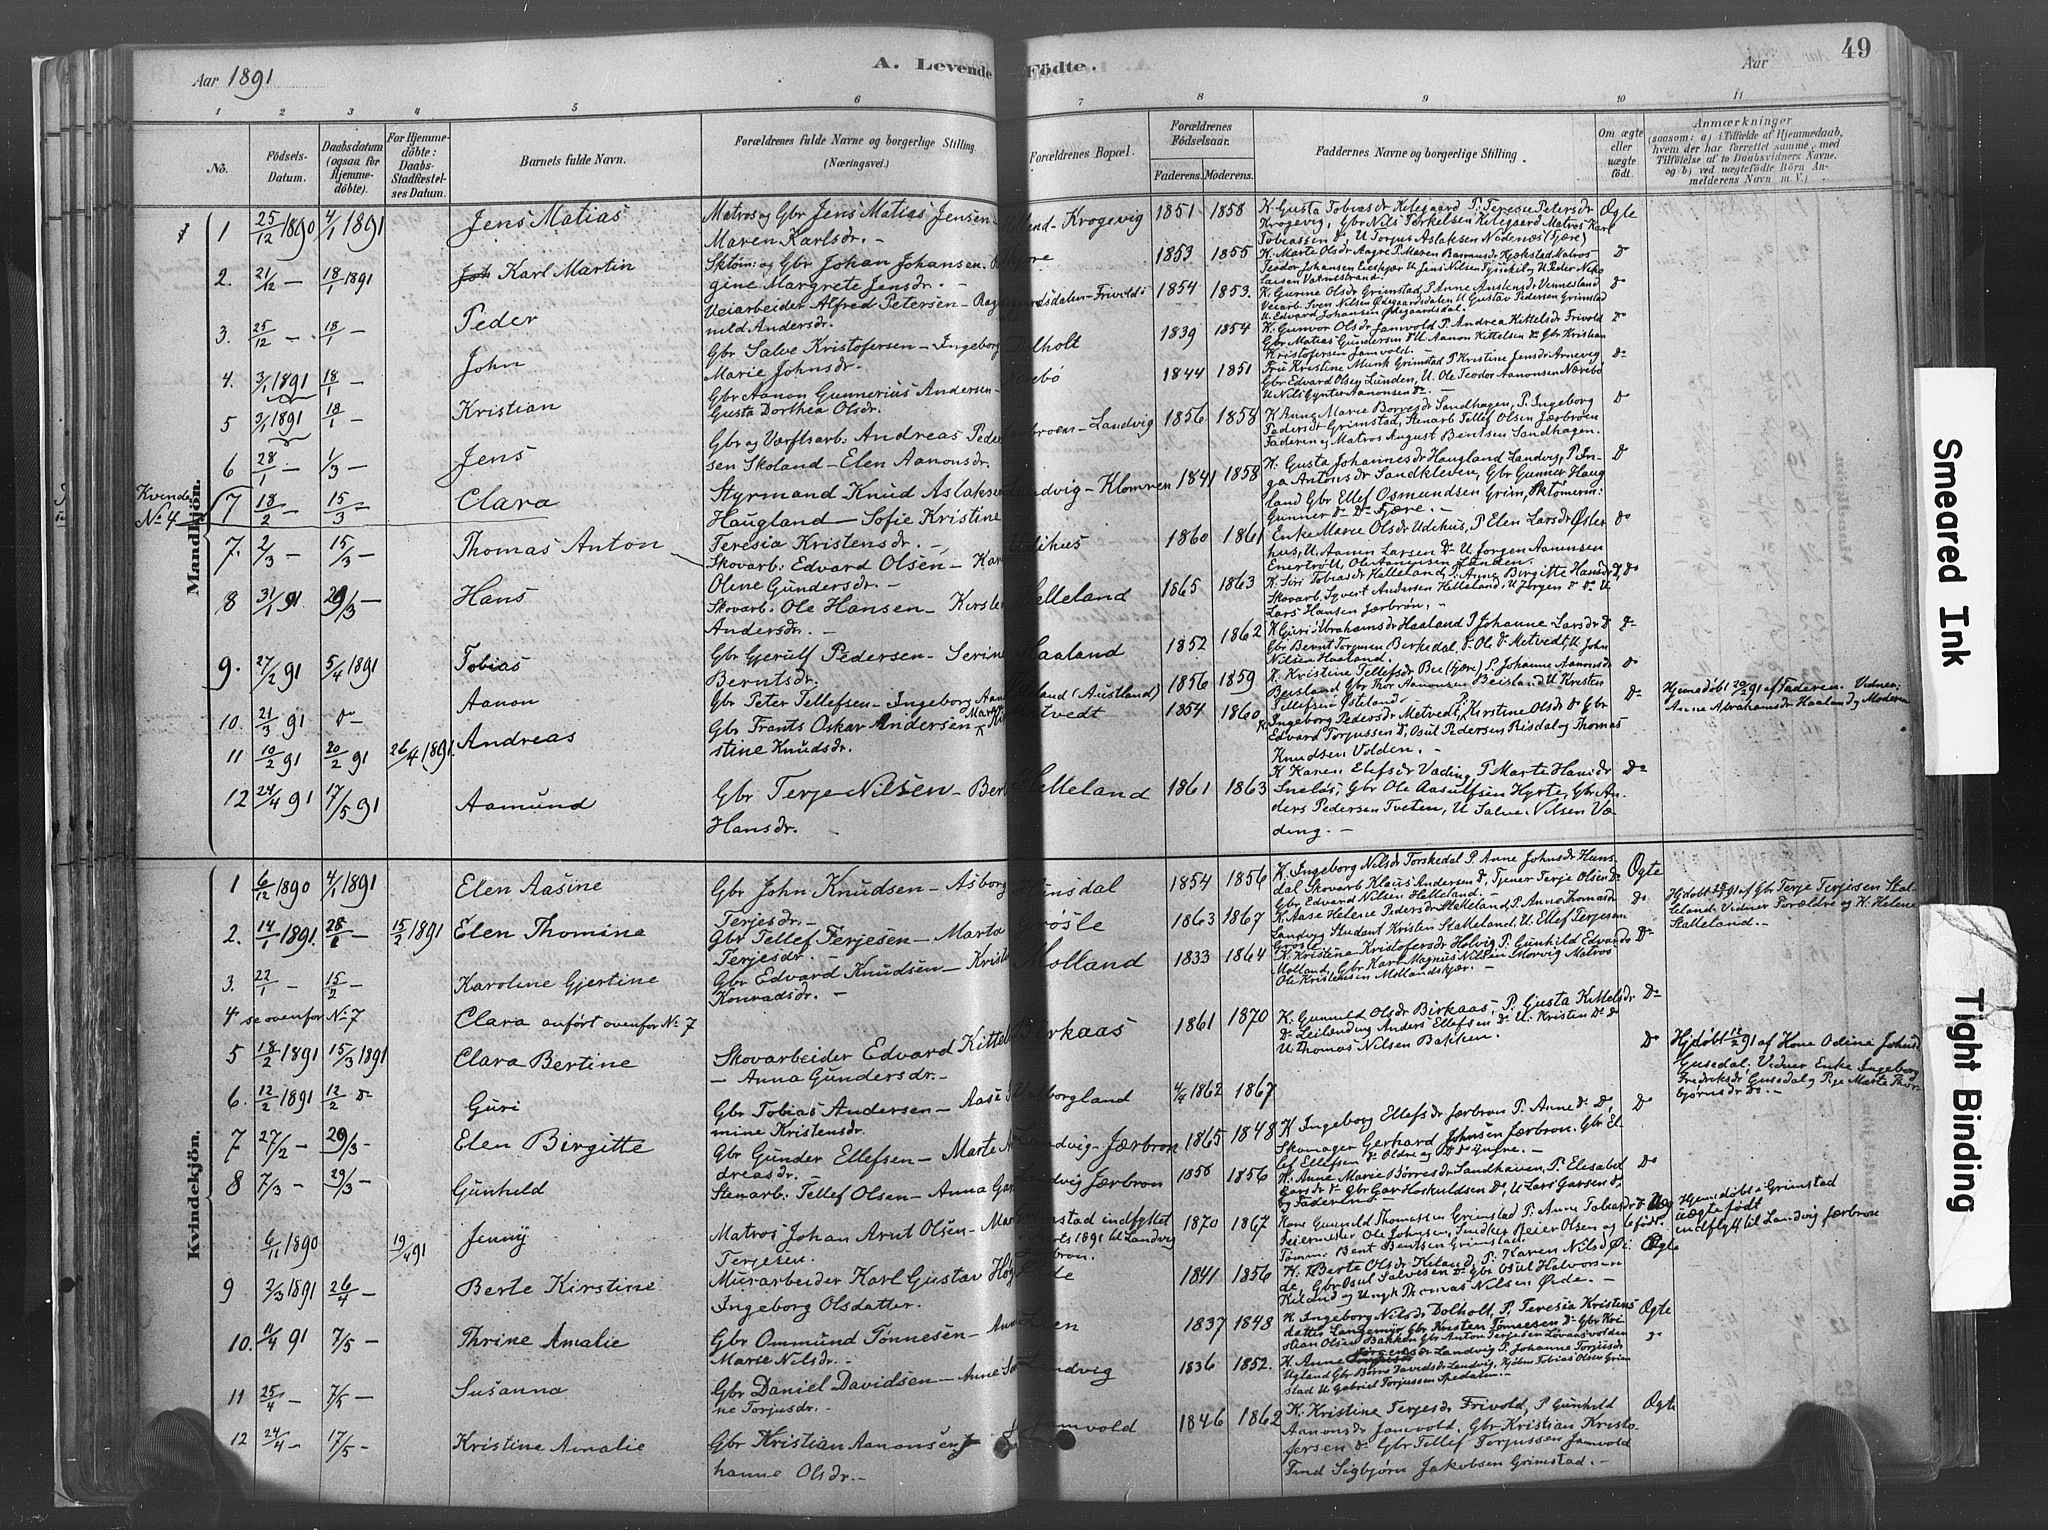 Aar 1891
A. Levende Födte.
Aar
49
1 2 3 4 5 6 7 8 9 10 11
No.
Födsels-Datum.
Daabsdatum (ogsaa for Hjemme-döbte).
For Hjemme-döbte: Daabs-Stadfæstel-ses Datum.
Barnets fulde Navn.
Forældrenes fulde Navne og borgerlige Stilling (Næringsvei.)
Forældrenes Bopæl.
Forældrenes Födselsaar.
Faderens. Moderens.
Faddernes Navne og borgerlige Stilling.
Om ægte eller uægte födt.
Anmærkninger
(saasom: a) i Tilfælde af Hjemmedaab, hvem der har forrettet samme, med Tilföielse af to Daabsvidners Navne. og b) ved uægtefödte Börn An-melderens Navn m. V.)
Mandkjön.
1 25/12 1890 4/1 1891 Jens Matias
Matros og Gbr Jens Matias Jensen - Maren Karlsdr. -
Krogevig 1851 1858
K. Gusta Tobiasdr Kilegaard P. Terese Petersdr Krogevig, Gbr Nils Terkelsen Kilegaard Matros Karl Tobiassen Do, U Torjus Aslaksen Nödenes (Fjære) -
Ægte
2. 21/12 - 18/1 1891 Karl Martin
og Gbr Johan Johansen - gine Margrete Jensdr. -
1853 1855
K. Marte Olsdr
Do
3. 25/12 - 18/1 - Peder
Veiarbeider Alfred Petersen - Ragnhild Andersdr.
Frivold 1854 1853.
K. Gurine Olsdr Grimstad, P. Anne Austensdr Vennesland Veiarb. Sven Nilsen Ødegaardsdalen U Gustav Pedersen Grimstad U. Edvard Johansen Ødegaardsdal.
Do
4. 3/1 1891 18/1 - John
Gbr Salve Kristofersen - Ingeborg Marie Johnsdr.
Dolholt 1839 1854
K. Gunvor Olsdr Jamvold P. Andrea Kittelsdr Frivold Gbr Matias Gundersen Do U Aanon Kittelsen Do Gbr Kristian Kristofersen Jamvold. -
Do
5 3/1 1891 18/1 - Kristian
Gbr Aanon Gunnerius Andersen - Gusta Dorthea Olsdr.
1844 1851
Fru Kristine Munk Grimstad P Kristine Jensdr Arnevig Gbr Edvard Olsen Lunden, U. Ole Teodor Aanonsen Nærebö U Nils Gynter Aanonsen Do -
Do
6 28/1 - 1/3 - Jens
Gbr og Værftsarb: Andreas Pedersen Skoland - Elen Aanonsdr.
Landvig 1856 1858
K Anne Marie Borresdr Sandhagen, P. Ingeborg Pedersdr Grimstad, Stenarb Tellef Olsen Jærbroen Faderen og Matros August Bentsen Sandhagen.
Do
Kvindk. No 4
7 18/2 - 15/3 - Clara
Styrmand Knud Aslaksen Haugland - Sofie Kristine Teresia Kristensdr. -
Landvig - Klomren 1841 1858
K. Gusta Johannesdr Haugland Landvig, P. Inga Antonsdr Sandkleven, Gbr Gunner Haugland Gbr Ellef Osmundsen Grim, Gunner Do Do Fjære. -
Do
7. 2/3 - 15/3 - Thomas Anton
Skovarb: Edvard Olsen - Karen Oline Gundersdr. -
Udihus 1860 1861
Enke Marie Olsdr Udihus, P Elen Larsdr Østerhus, U. Aanon Larsen Do U. Jorgen Aanensen
Do
8 31/1 91 29/3 - Hans
Skovarb. Ole Hansen - Kirsten Andersdr. -
Helleland 1865 1863
K. Siri Tobiasdr Helleland, P. Anne Birgitte Hansdr D, Skovarb. Syvert Andersen Helleland, U Jorgen Do Do U Lars Hansen Jærbrön. -
Do
9. 27/2 91 5/4 1891 Tobias
Gbr Gjerulf Pedersen - Serine Berntsdr.
Haaland 1852 1862
K Guri Abrahamsdr Haaland P Johanne Larsdr Do Gbr Bernt Torjusen Berkedal, Do Ole Do Metvedt, U John Nilsen Haaland.
Do
10. 21/3 91 Do Aanon
Gbr Peter Tellefsen - Ingeborg
(Austland) 1856 1859
K. Kristine Tellefsdr Bie (Fjære) P. Johanne Aanonsdr Beisland Gbr Thor Aanonsen Beisland U Kristen Tellefsen
Do
11 10/2 91 20/2 91 26/4 1891. Andreas
Gbr Frants Oskar Andersen - Marte Kirstine Knudsdr.
Metvedt 1854 1860
Ingeborg Pedersdr Metvedt P. Kirstine Olsdr Do Gbr Edvard Torjussen Do, Osul Pedersen Risdal og Thomas Knudsen Volden. -
Do
Hjemedöbt 20/2 91 af Faderen. Vidner: Anne Abrahamsdr Haaland og Moderen
12 24/4 91 17/5 91 Aamund
Gbr Terje Nilsen - Hansdr. -
Helleland 1861 1863
K Karen Elefsdr Væding P Marte Hansdr Gbr Ole Aasulfsen Hyrte, Gbr Anders Pedersen Tveten, U Salve Nilsen Væding. -
Do
Kvindekjön.
1 6/12 1890 4/1 1891 Elen Aasine
Gbr John Knudsen - Asborg Terjesdr. -
Hunsdal 1854 1856
K. Ingeborg Nilsdr Torskedal P. Anne Johnsdr Hunsdal Skovarb Klaus Andersen Do, Tjener Terje Olsen Do Gbr Edvard Nilsen Helleland. -
Ægte
2. 14/1 1891. 28/1 - 15/2 1891 Elen Thomine
Gbr Tellef Terjesen - Marta Terjesdr. -
Grösle 1863 1867
K Aase Helene Pedersdr Stalleland, P. Anne Thomasdr Landvig Student Kristen Stalleland, U. Ellef Terjesen Grösle
Do
Hjdöbt 28/1 91 af Gbr Terje Terjesen Stalleland. Vidner Forældre og K. Helene Stalleland. -
3. 22/1 - 15/2 - Karoline Gjertine
Gbr Edvard Knudsen - Konradsdr. -
Molland 1833 1864
K. Kristine Kristofersdr Holvig P. Gunhild Edvardsdr Molland, Gbr Karl Magnus Nilsen Morvig Matros Ole Kristensen Mollandskjær. -
Do
4 se ovenfor No 7 Clara anfört ovenfor No 7
5 18/2 1891 15/3 1891 Clara Bertine
Skovarbeider Edvard Kittelsen - Anna Gundersdr. -
Birkaas 1861 1870
K. Gunnuld Olsdr Birkaas, P. Gusta Kittelsdr Do Leilænding Anders Ellefsen Do U. Kristen Do Do U Thomas Nilsen Bakken.
Do
6. 12/2 1891 12/2 Do Guri
Gbr Tobias Andersen - Aasemine Kristensdr.
1862 1867
Do
Hjdöbt 12/2 91 af Kone Odine Johnsd Gusedal, Vidner Enke Ingeborg Fredriksdr Gusedal og Pige Marte Thorbjörnsdr Do. -
7 27/2 - 29/3 - Elen Birgitte
Gbr Gunder Ellefsen - Marte Andreasdr. -
Landvig - Jærbron 1865 1848
K Ingeborg Ellefsdr Jærbron P. Anne Do D, Skomager Gerhard Johnsen Jærbron, Gbr Ellef Ellefsen Do Oldre og Do Do Yngre. -
Do
8 7/3 - 29/3 - Gunhild
Stenarb: Tellef Olsen - Anna
Landvig Jærbron 1858 1856
K. Anne Marie Börresdr Sandhaven, P. Elisabet Garsdr Do Gbr Gar Hoskuldsen Do, U Lars Garsen Do og Faderen. -
Do
6/11 1890 19/4 91 Jenny
Matros Johan Arnt Olsen - Terjesen.
Grimstad indflyttet Marts 1891 til Landvig Jærbron.
1870 1867
Kone Gunnuld Thomassen Grimstad P. Anne Tobiasdr Feiermester Ole Johnsen, Reier Olsen og Bent Bentsen Grimstad.
Uægte födt.
Hjemdöbt i Grimstad uægte födt indflytt til Landvig Jærbron
9 2/3 1891 26/4 - Berte Kirstine
Murarbeider Karl Gustav Ingeborg Olsdatter.
1841 1856
K. Berte Olsdr Kiland, P. Karen Nilsdr Öide, Gbr Osul Salvesen Do Gbr Osul Halvorsen Kiland og Ungk. Thomas Nilsen Øide. -
Ægte
10. 11/4 91 7/5 - Thrine Amalie
Gbr Ommund Tönnesen - Marie Nilsdr. -
1837 1848
K. Ingeborg Nilsdr Dolholt, P. Teresia Kristensdatter Langemyr Gbr Kristen Tönnesen Do Gbr Kristian Olsen Bakken Gbr Anton Terjesen
Ægte
11 25/4 - 7/5 - Susanna
Gbr Daniel Davidsen - Anne Torjusdr. -
Landvig 1836 1852.
K. Anne Jörgensdr Landvig P. Johanne Torjusdr Ugland Gbr Börre Davidsdr Landvig, Kjöbm Tobias Olsen Grimstad U. Gabriel Torjussen Spedalen. -
12 24/4 - 17/5 - Kristine Amalie
Gbr Kristian Aanonsen Johanne Olsdr. -
Jamvold 1846 1862
K. Kristine Terjesdr Frivold, P Gunhild Aanonsdr Jamvold, Gbr Kristian Kristofersen Do Gbr Tellef Torjussen Jamvold Find Sigbjørn Jakobsen Grimstad. -
Ægte
Smeared Ink
Tight Binding